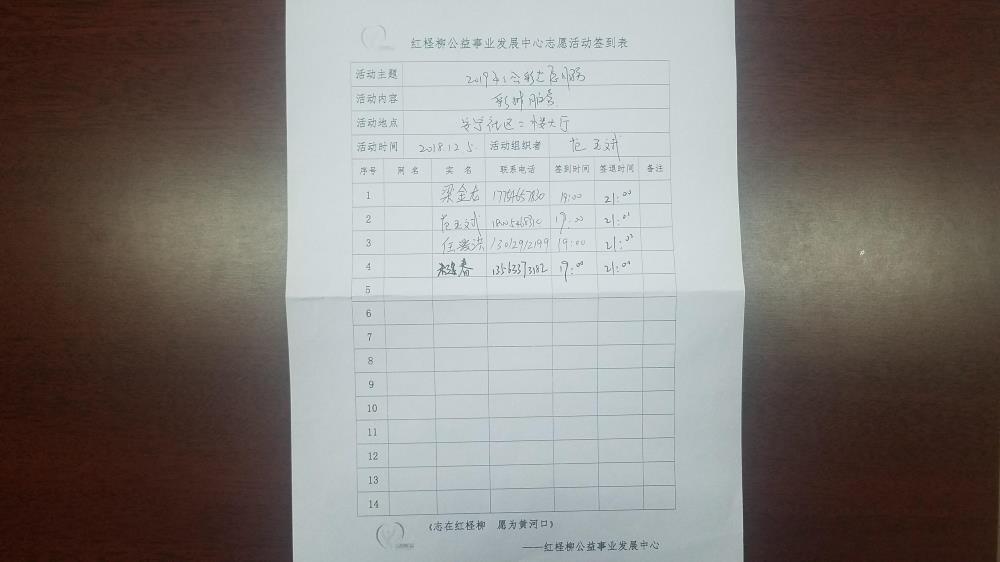 红柽柳公益事业发展中心志愿活动签到表
活动主题
活动内容
活动地点 安宁社区二楼大厅
活动时间 2018.12.5. 活动组织者 范玉斌
序号 网名 实名 联系电话 签到时间 签退时间 备注
1 梁金志 19:00 21:00
2 范玉斌 19:00 21:00
3 13012912199 19:00 21:00
4 13563373182 19:00 21:00
5
6
7
8
9
10
11
12
13
14
(志在红柽柳 愿为黄河口)
——红柽柳公益事业发展中心